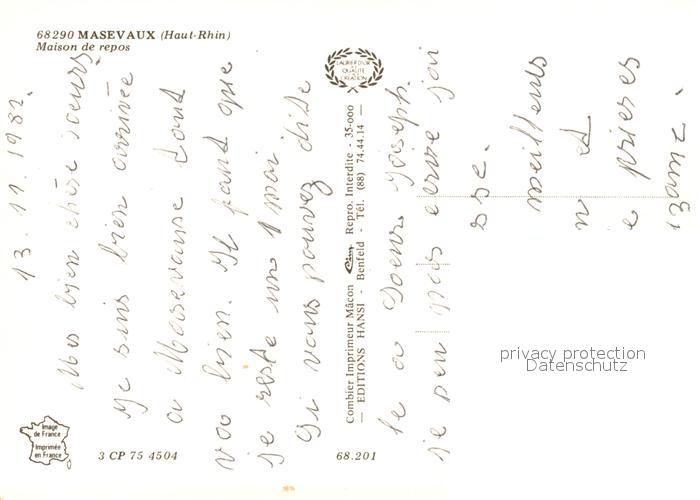 68290 MASEVAUX (Haut-Rhin)
Maison de repos
LAURIER D'OR
DE LA
QUALITÉ
CRÉATION
13. 11. 1982.
Mes bien chère soeurs
Je suis bien arrivée
a Masevause tout
vas bien. Il faut que
je reste un 1 moi
Si vous pouvez dise
le a Soeur Joiseph.
je peu pas ecrive j'ai
sse.
meilleuls
n et
e prieres
zanne.
Combier Imprimeur Mâcon Cim Repro. Interdite - 35-000
— EDITIONS HANSI - Benfeld - Tél. (88) 74.44.14 —
privacy protection
Datenschutz
Image
de France
Imprimée
en France
3 CP 75 4504
68.201